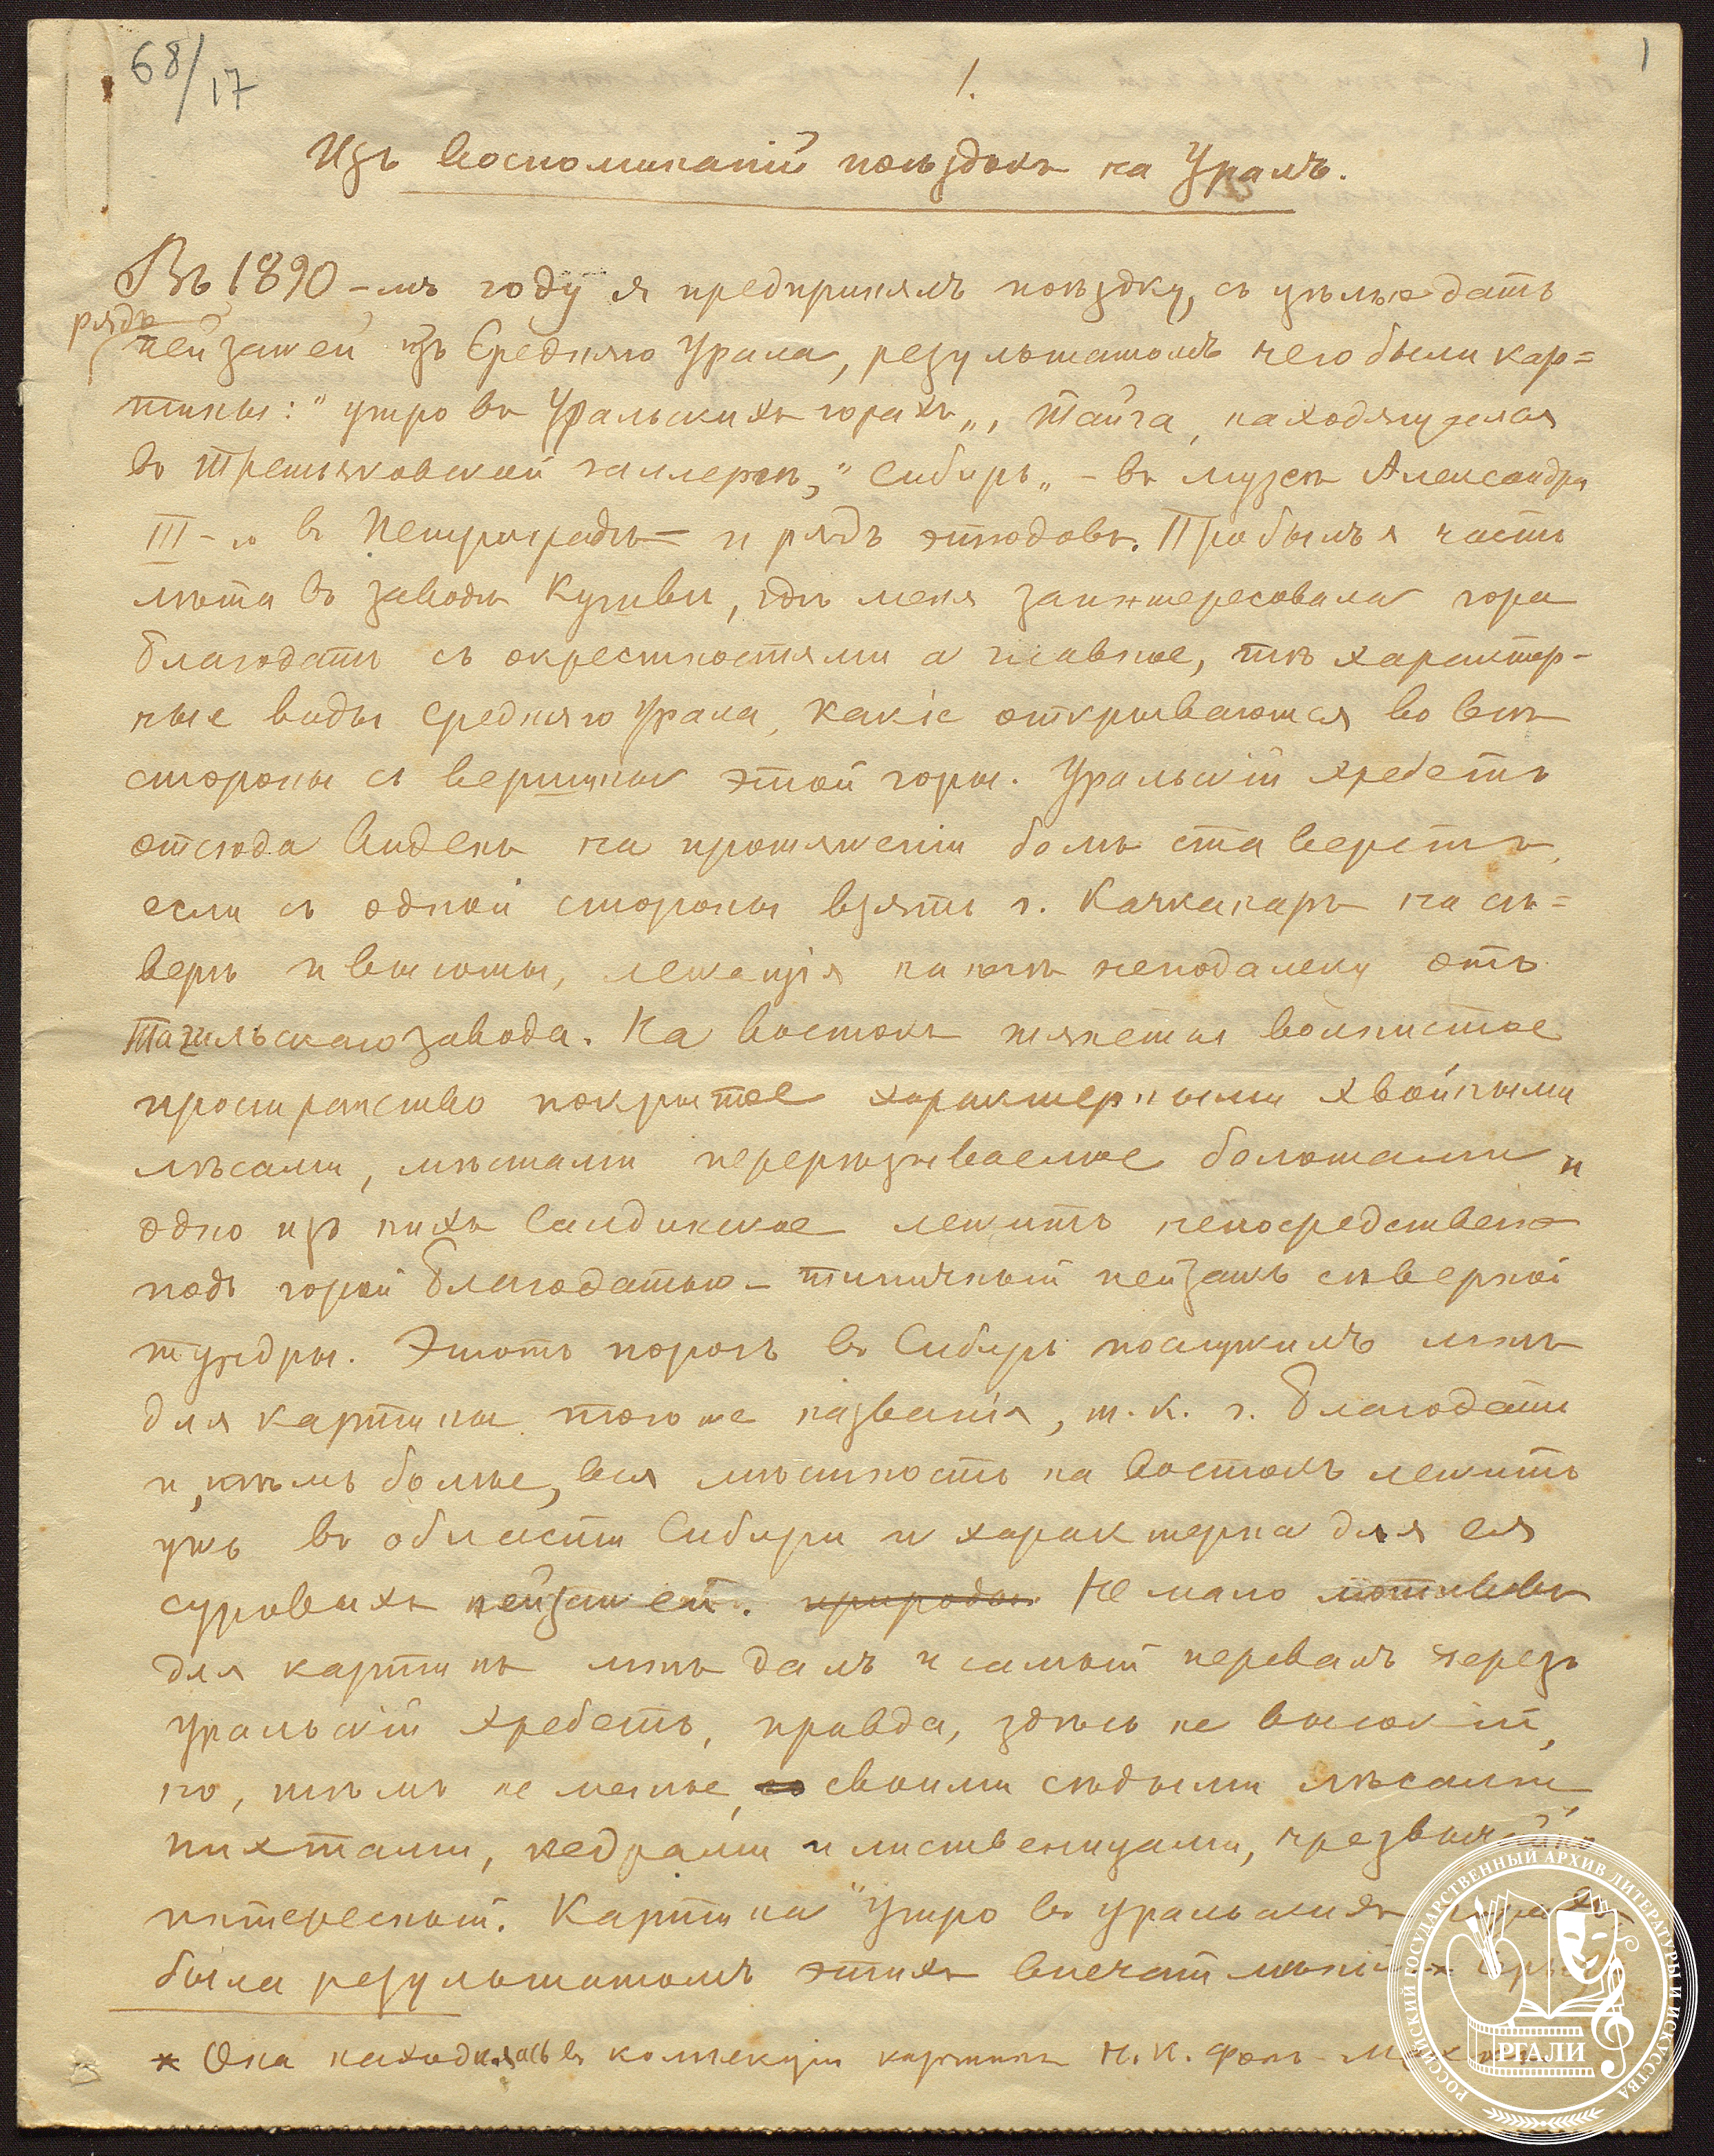 68/17
1.
1
Изъ воспоминаній поѣздокъ на Уралъ.
Въ 1890-мъ году я предпринялъ поѣздку, съ цѣлью дать
рядъ
пейзажей изъ Средняго Урала, результатомъ чего были кар=
тины: "утро въ Уральскихъ горахъ„, Тайга, находящуяся
въ Третьяковской галлереѣ, "Сибирь„ - въ музеѣ Александра
III-го въ Петроградѣ= и рядъ этюдовъ. Пробылъ я часть
лѣта въ заводѣ Кушвы, гдѣ меня заинтересовала гора
Благодать съ окрестностями а главное, тѣ характер-
ные виды Средняго Урала, какіе открываются во всѣ
стороны съ вершины этой горы. Уральскій хребетъ
отсюда виденъ на протяженіи болѣ ста верстъ,
если съ одной стороны взять г. Качканаръ на сѣ=
веръ и высоты, лежащія на югѣ неподалеку отъ
Тагильскаго завода. На востокъ тянется волнистое
пространство покрытое характерными хвойными
лѣсами, мѣстами перерѣзываемое болотами и
одно изъ нихъ Салдинское лежитъ непосредственно
подъ горой Благодатью - типичный пейзажъ сѣверной
тундры. Этотъ порогъ въ Сибирь послужилъ мнѣ
для картины того же названія, т.к. г. Благодать
и, тѣмъ болѣе, вся мѣстность на востокъ лежитъ
ужъ въ области Сибири и характерна для ея
суровыхъ пейзажей. природы. Не мало мотивовъ
для картинъ мнѣ далъ и самый перевалъ черезъ
Уральскій хребетъ, правда, здѣсь не высокій,
но, тѣмъ не менѣе, со своими сѣдыми лѣсами,
пихтами, кедрами и лиственницами, чрезвычайно
интересный. Картина "Утро въ Уральскихъ горахъ
была результатомъ этихъ впечатлѣній *
* Она находилась въ коллекціи картинъ Н.К. фонъ-Меккъ
РОССИЙСКИЙ ГОСУДАРСТВЕННЫЙ АРХИВ ЛИТЕРАТУРЫ И ИСКУССТВА
РГАЛИ